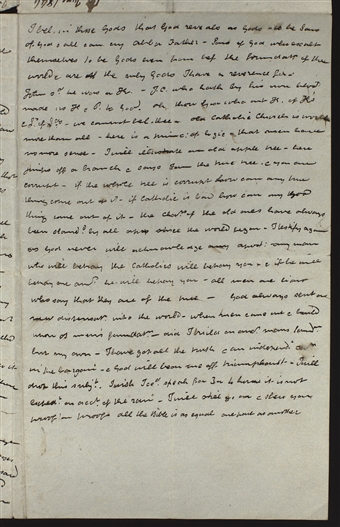 16 June 1844
I bel. in those Gods that God reveals as Gods - to be Sons
of God & all can cry Abba Father - Sons of God who exalt
themselves to be Gods even from bef the foundatn of the
world & are the only Gods I have a reverence for -
John sd. he was a K. - J.C. who hath by his own blood
made us K & P to God. Oh thou God who art K. of K's
& L. of Lds - we cannot bel. thee - old Catholic Church is worth
more than all - here is a princ. of logic - that men have
no more sense - I will illustrate an old apple tree - here
jumps off a branch & says I am the true tree. & you are
corrupt - if the whole tree is corrupt how can any true
thing come out of it - if Catholic is bad how can any good
thing come out of it - the charr. of the old ones have always
been sland. by all apos since the world began - I testify again
as God never will acknowledge any apost: any man
who will betray the Catholics will betray you - & if he will
betray one anr. he will betray you - all men are liars
who say that they are of the true - God always sent a
new dispensatn. into the world - when men come out & build
upon o men's foundatn. - did I build on anr. mans foundtn
but my own - I have got all the truth & an independt.
in the bargain - & God will bear me off triumphant - I will
drop this subjt. I wish I co. speak for 3 or 4 hours it is not
exped. on acct. of the rain - I will still go on & shew you
proof on proofs all the Bible is as equal one part as another